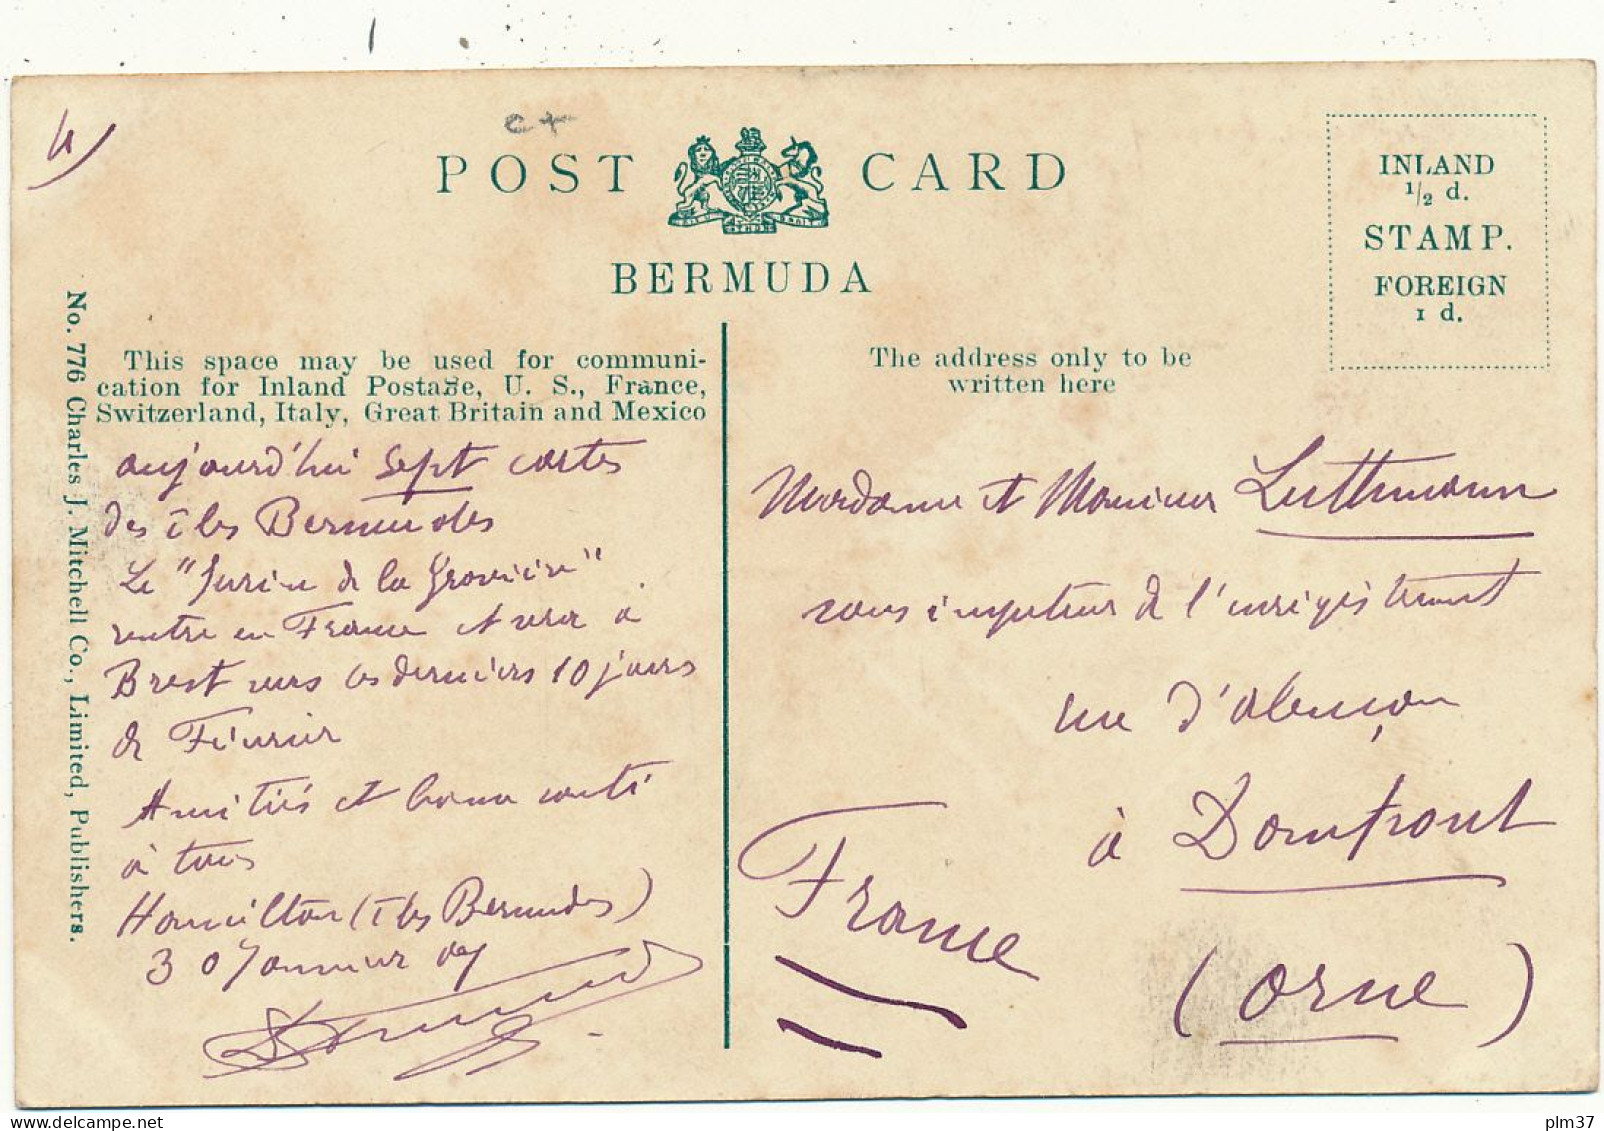 4)
c+
POST CARD
BERMUDA
INLAND
1/2 d.
STAMP.
FOREIGN
1 d.
No. 776 Charles J. Mitchell Co., Limited, Publishers.
This space may be used for communi-
cation for Inland Postage, U. S., France,
Switzerland, Italy, Great Britain and Mexico
aujourd'hui sept cartes
des îles Bermudes
Le "Jurien de la Gravière"
rentre en France et sera à
Brest vers les derniers 10 jours
de Février
Amitiés et bonne santé
à tous
Hamilton (îles Bermudes)
30 Janvier 07
The address only to be
written here
Madame et Monsieur Luttmann
sous inspecteur de l'enregistrement
rue d'alençon
à Domfront
France
(orne)
plm37